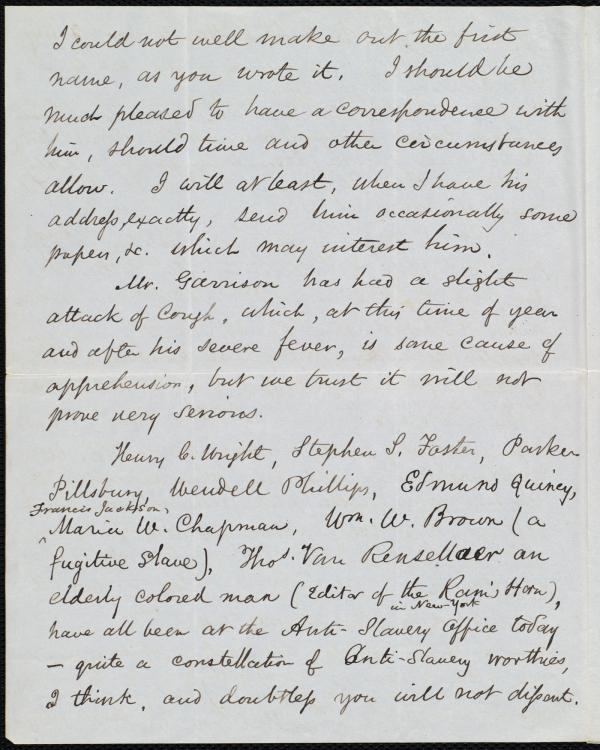 I could not well make out the first
name, as you wrote it. I should be
much pleased to have a correspondence with
him, should time and other circumstances
allow. I will at least, when I have his
address, exactly, send him occasionally some
papers, &c. which may interest him.
Mr. Garrison has had a slight
attack of Cough, which, at this time of year
and after his severe fever, is some cause of
apprehension, but we trust it will not
prove very serious.
Henry C. Wright, Stephen S. Foster, Parker
Pillsbury, Wendell Phillips, Edmund Quincy,
Francis Jackson,
^ Maria W. Chapman, Wm. W. Brown (a
fugitive Slave), Thos. Van Rensellaer an
elderly colored man (Editor of the Ram's Horn),
in New-York
have all been at the Anti-Slavery Office today
— quite a constellation of Anti-Slavery worthies,
I think, and doubtless you will not dissent.